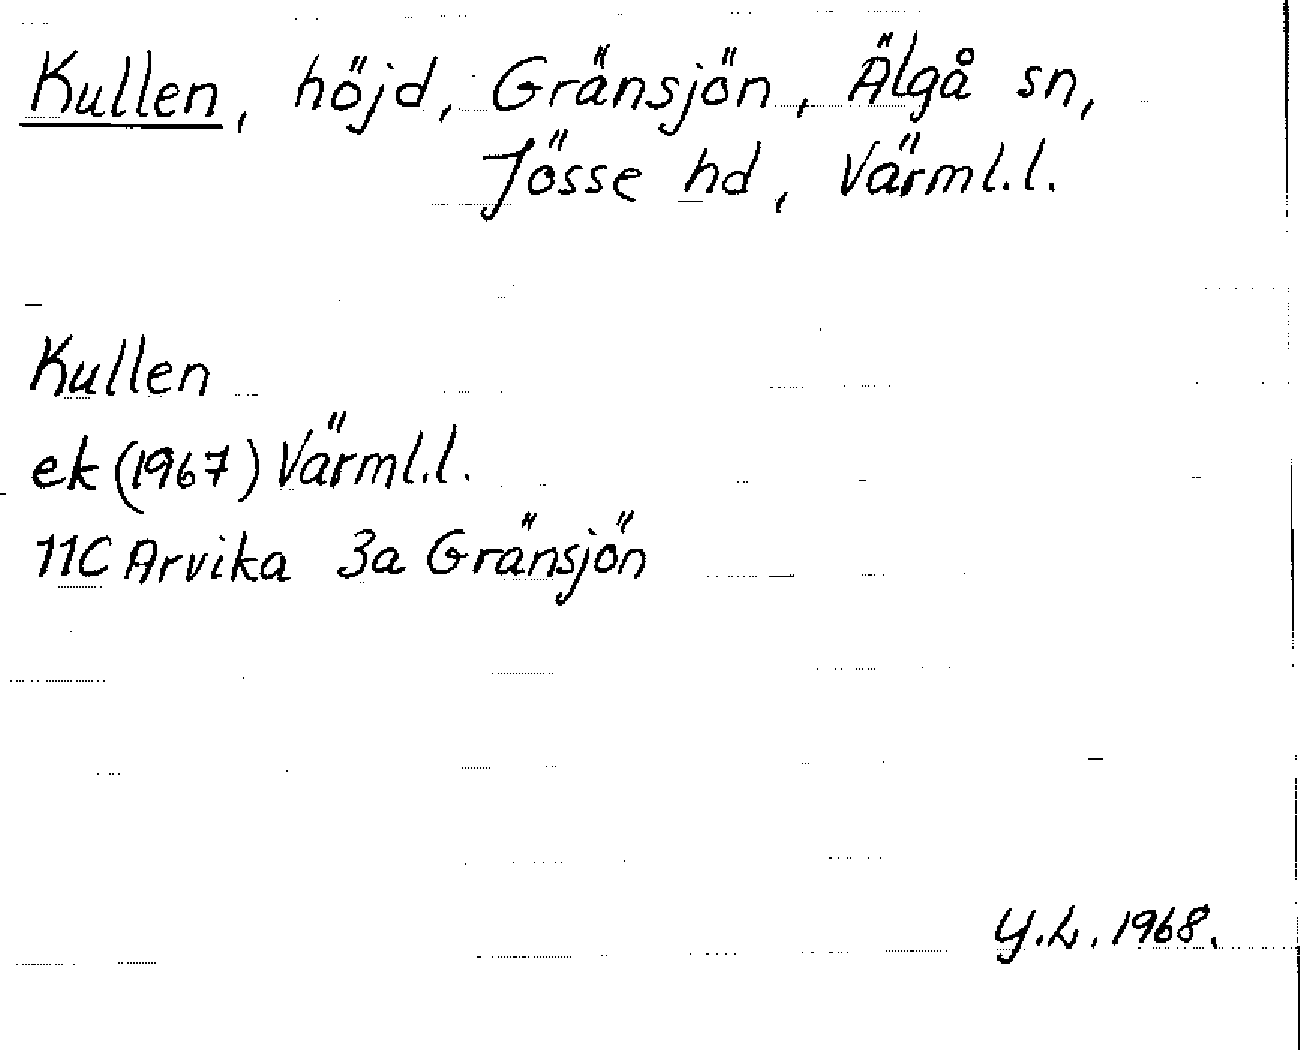 Kullen, höjd, Gränsjön, Älgå sn,
Jösse hd, Värml.l.
Kullen
ek (1967) Värml.l.
11C Arvika 3a Gränsjön
Y.L. 1968.